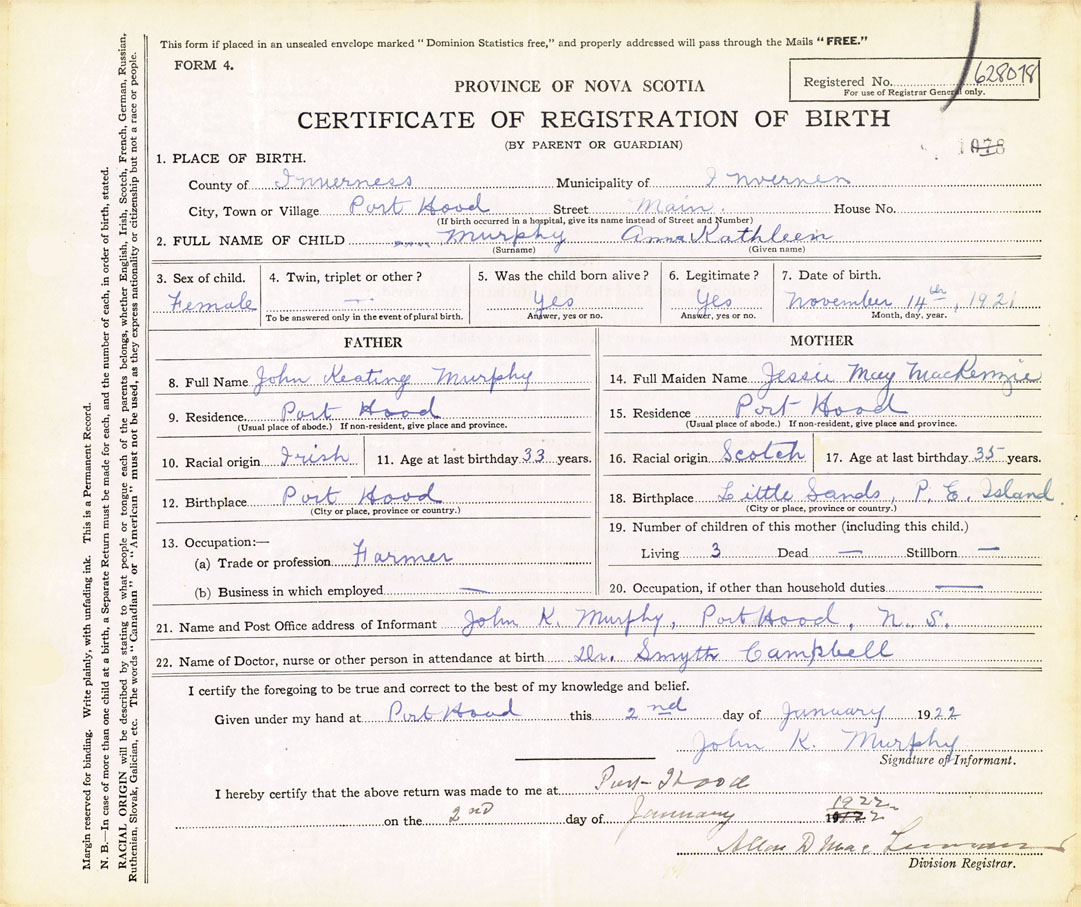 This form if placed in an unsealed envelope marked "Dominion Statistics free," and properly addressed will pass through the Mails "FREE."
FORM 4.
Registered No. 628078
For use of Registrar General only.
PROVINCE OF NOVA SCOTIA
CERTIFICATE OF REGISTRATION OF BIRTH
(BY PARENT OR GUARDIAN)
1. PLACE OF BIRTH.
County of Inverness Municipality of Inverness
City, Town or Village Port Hood Street Main. House No.
(If birth occurred in a hospital, give its name instead of Street and Number)
2. FULL NAME OF CHILD Murphy Anna Kathleen
(Surname) (Given name)
3. Sex of child. 4. Twin, triplet or other? 5. Was the child born alive? 6. Legitimate? 7. Date of birth.
Female — Yes Yes November 14th, 1921
To be answered only in the event of plural birth. Answer, yes or no. Answer, yes or no. Month, day, year.
FATHER
8. Full Name John Keating Murphy
9. Residence. Port Hood
(Usual place of abode.) If non-resident, give place and province.
10. Racial origin Irish 11. Age at last birthday 33 years.
12. Birthplace Port Hood
(City or place, province or country.)
13. Occupation:—
(a) Trade or profession Farmer
(b) Business in which employed —
MOTHER
14. Full Maiden Name Jessie May MacKenzie
15. Residence Port Hood
(Usual place of abode.) If non-resident, give place and province.
16. Racial origin Scotch 17. Age at last birthday 35 years.
18. Birthplace Little Sands, P. E. Island
(City or place, province or country.)
19. Number of children of this mother (including this child.)
Living 3 Dead — Stillborn —
20. Occupation, if other than household duties —
21. Name and Post Office address of Informant John K. Murphy, Port Hood, N. S.
22. Name of Doctor, nurse or other person in attendance at birth Dr. Smyth Campbell
I certify the foregoing to be true and correct to the best of my knowledge and belief.
Given under my hand at Port Hood this 2nd day of January 1922
John K. Murphy
Signature of Informant.
I hereby certify that the above return was made to me at Port Hood
on the 2nd day of January 1922
Allan D Mac
Division Registrar.
Margin reserved for binding. Write plainly, with unfading ink. This is a Permanent Record.
N. B.—In case of more than one child at a birth, a Separate Return must be made for each, and the number of each, in order of birth, stated.
RACIAL ORIGIN will be described by stating to what people or tongue each of the parents belongs, whether English, Irish, Scotch, French, German, Russian,
Ruthenian, Slovak, Galician, etc. The words "Canadian" or "American" must not be used, as they express nationality or citizenship but not a race or people.